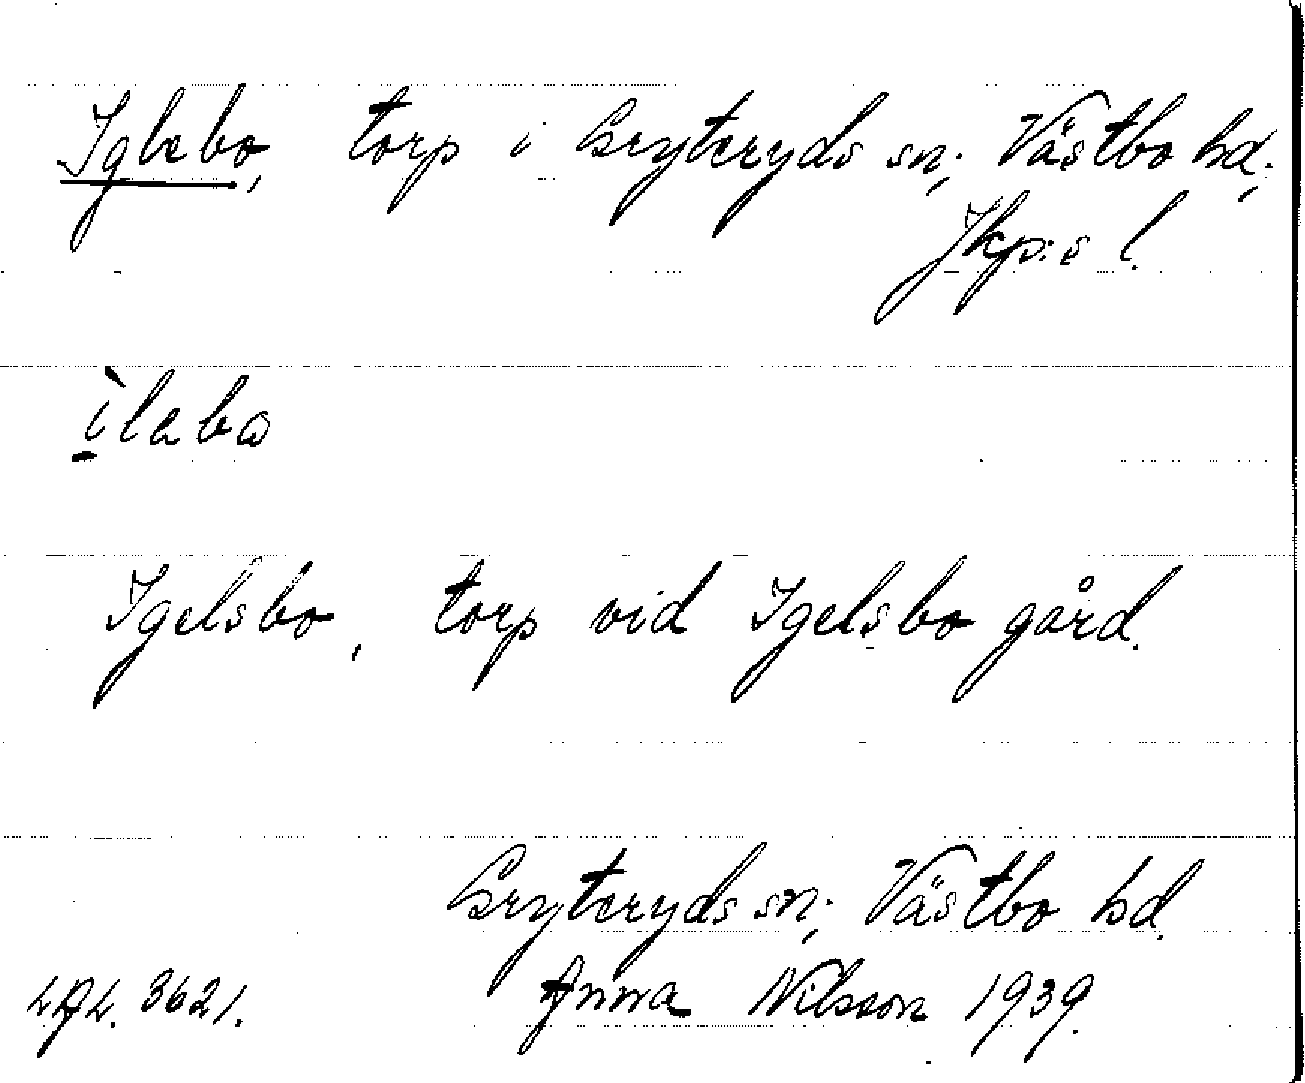 Iglebo, torp i Gryteryds sn; Västbo hd;
Jkp:s l.
ìlebo
Igelsbo, torp vid Igelsbo gård.
Gryteryds sn; Västbo hd.
LAL. 3621. Anna Nilsson 1939.